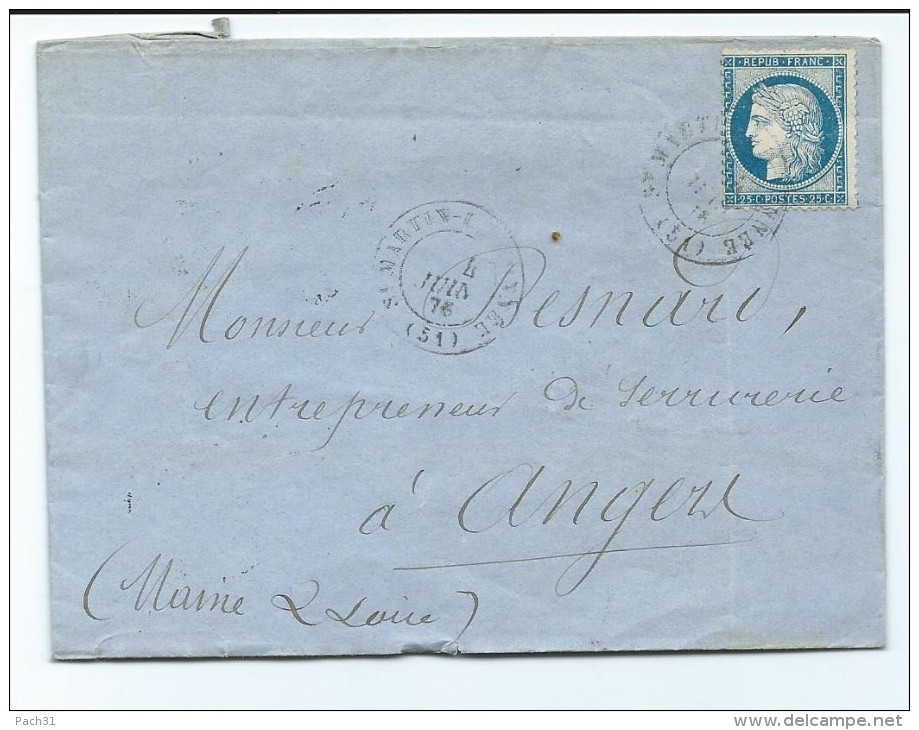 REPUB·FRANC
25·C·POSTES·25·C
ST MARTIN-L
4
JUIN
76
(51)
Monsieur Besnard,
entrepreneur de Serrurerie
à Angers
(Maine & Loire)
Pach31
www.delcampe.net